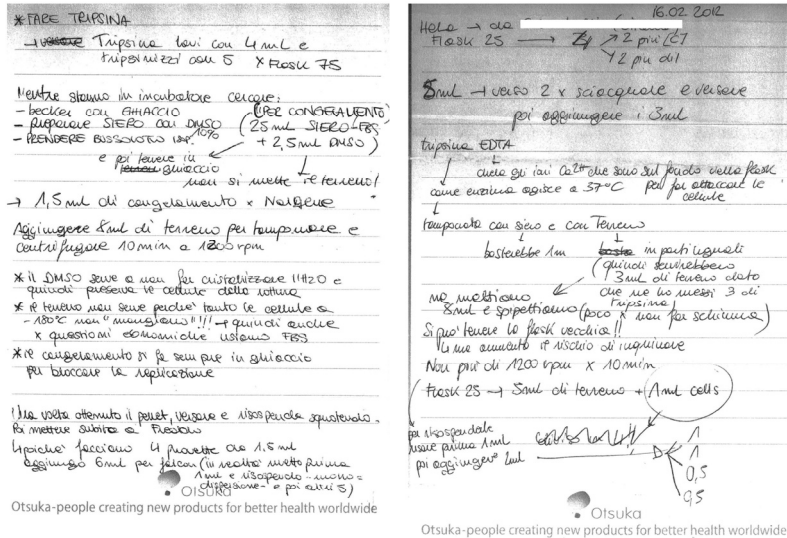 * FARE TRIPSINA
→ Tripsina lavi con 4 mL e
tripsinizzi con 5 x Flask 75
Mentre stanno in incubatore cercare:
- becker con GHIACCIO
- preparare SIERO con DMSO 10%
- PRENDERE BUSSOLOTTO
(PER CONGELAMENTO
25 mL SIERO-FBS
+ 2,5 mL DMSO)
e poi tenere in
ghiaccio
non si mette il terreno!
→ 1,5 mL di congelamento x Nalgene
Aggiungere 8 mL di terreno per tamponare e
centrifugare 10 min a 1200 rpm
* il DMSO serve a non far cristallizzare l'H2O e
quindi preserva le cellule dalla rottura
* il terreno non serve perché tanto le cellule a
-180°C non "mangiano"!!! → quindi anche
x questioni economiche usiamo FBS
* il congelamento si fa sempre in ghiaccio
per bloccare la replicazione
Una volta ottenuto il pellet, versare e risospendere squotendo.
Poi mettere subito a freddo
↳ poiché facciamo 4 provette da 1.5 ml
aggiungo 6 ml per falcon (in realtà metto prima
1 ml e risospendo - mono=
dispersione - e poi altri 5)
Otsuka
Otsuka-people creating new products for better health worldwide
16.02 2012
Hela → da
Flask 25 → 2 più
2 più dil
5 mL → verso 2 x sciacquare e versare
poi aggiungere i 3 ml
tripsina EDTA
chela gli ioni Ca2+ che sono sul fondo della flask
per far attaccare le
cellule
come enzima agisce a 37°C
tamponata con siero e con Terreno
basterebbe 1m
in parti uguali
(quindi servirebbero
3 ml di terreno dato
che ne ho messi 3 di
tripsina)
ma mettiamo
8 ml e spipettiamo (poco x non far schiuma)
Si può tenere la flask vecchia!!
↳ ma aumenta il rischio di inquinare
Non più di 1200 rpm x 10 min
Flask 25 → 5 ml di terreno + 1 ml cells
per risospendere
usare prima 1 ml
poi aggiungere 2 ml
1
1
0,5
0,5
Otsuka
Otsuka-people creating new products for better health worldwide